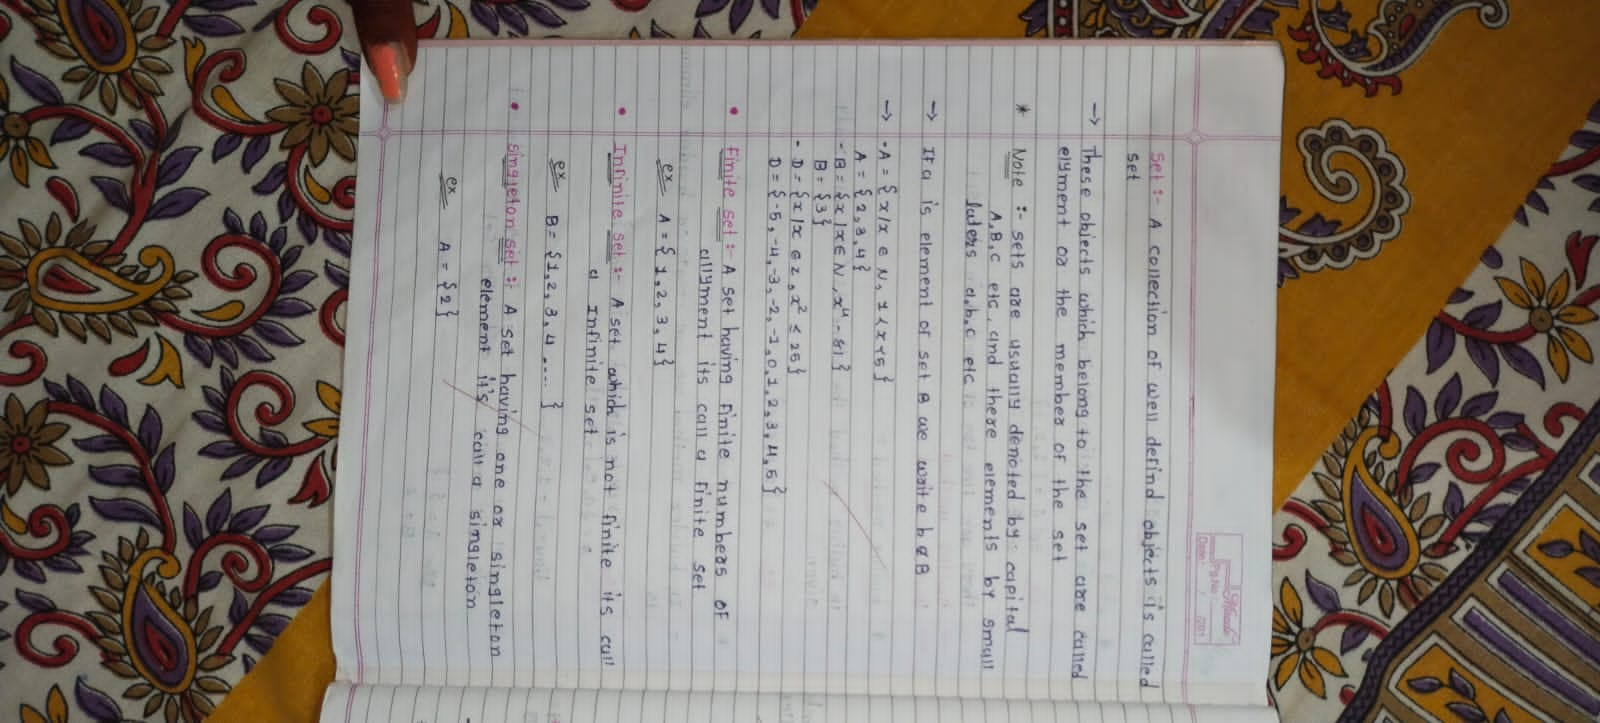 Pg No :
Date : / / 201
Set :- A connection of well derind objects is called
set
→ These objects which belong to the set are called
elyment or the member of the set
* Note :- sets are usually denoted by capital
A,B,C etc, and there elements by small
laters a,b,c etc
→ If a is element of set B we write b a B
→ • A = {x/x ∈ N, 1<x<5}
A = {2,3,4}
- B = {x/x ∈ N, x⁴ - 81}
B = {3}
- D = {x/x ∈ z, x² ≤ 25}
D = {-5,-4,-3,-2,-1,0,1,2,3,4,5}
• Finite set :- A set having finite numbers of
allyment its call a finite set
ex A = {1,2,3,4}
• Infinite set :- A set which is not finite its call
a Infinite set
ex B = {1,2,3,4....}
• singleton set :- A set having one or singleton
element it's call a singleton
ex A = {2}